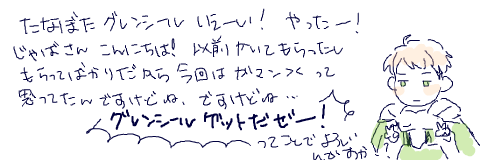 たなぼた グレンシール いえーい! やったー!
じゃばさん こんにちは! 以前かいてもらったし
もらってばかりだから 今回は ガマンんくって
思ってたんですけどね、ですけどね…
グレンシール ゲットだゼー!
ってことで よろしい
んですか??